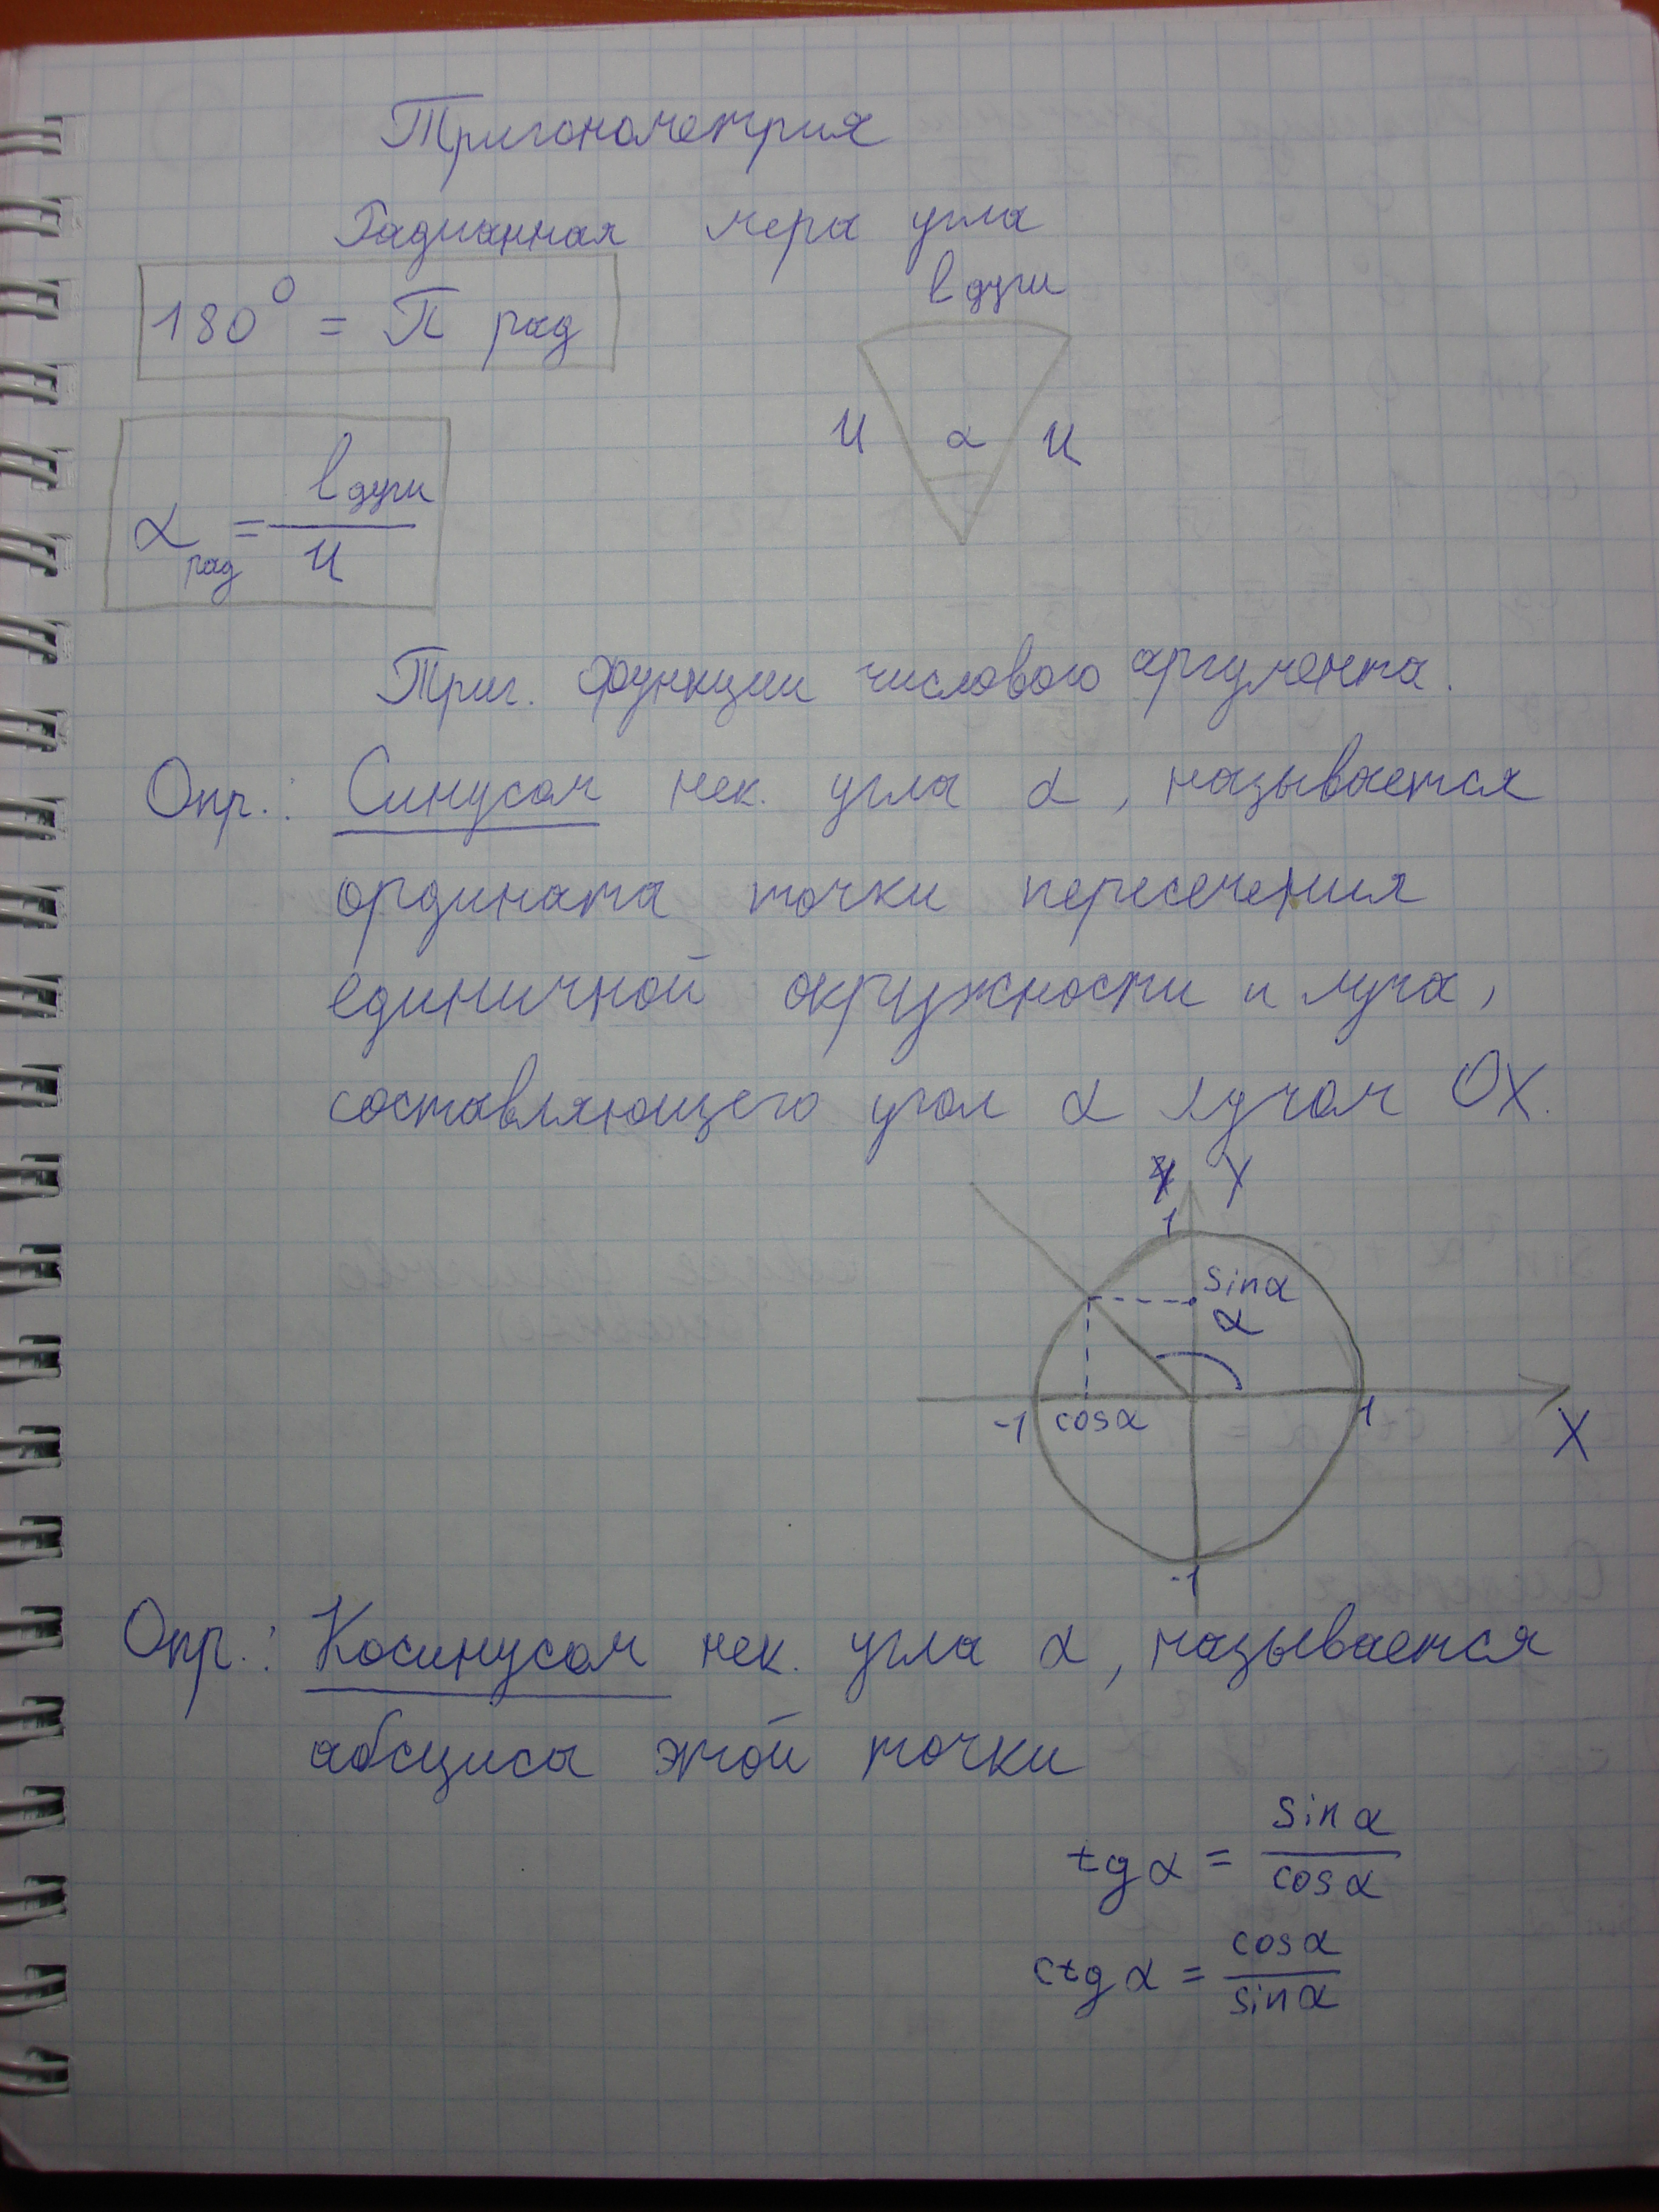 Тригонометрия
Радианная мера угла
180° = π рад
l дуги
α рад = l дуги / И
И α И
Триг. функции числового аргумента.
Опр.: Синусом нек. угла α, называется
ордината точки пересечения
единичной окружности и луча,
составляющего угол α лучом OX.
Y
1
sin α
α
-1 cos α 1
X
-1
Опр.: Косинусом нек. угла α, называется
абсциса этой точки
tg α = sin α / cos α
ctg α = cos α / sin α